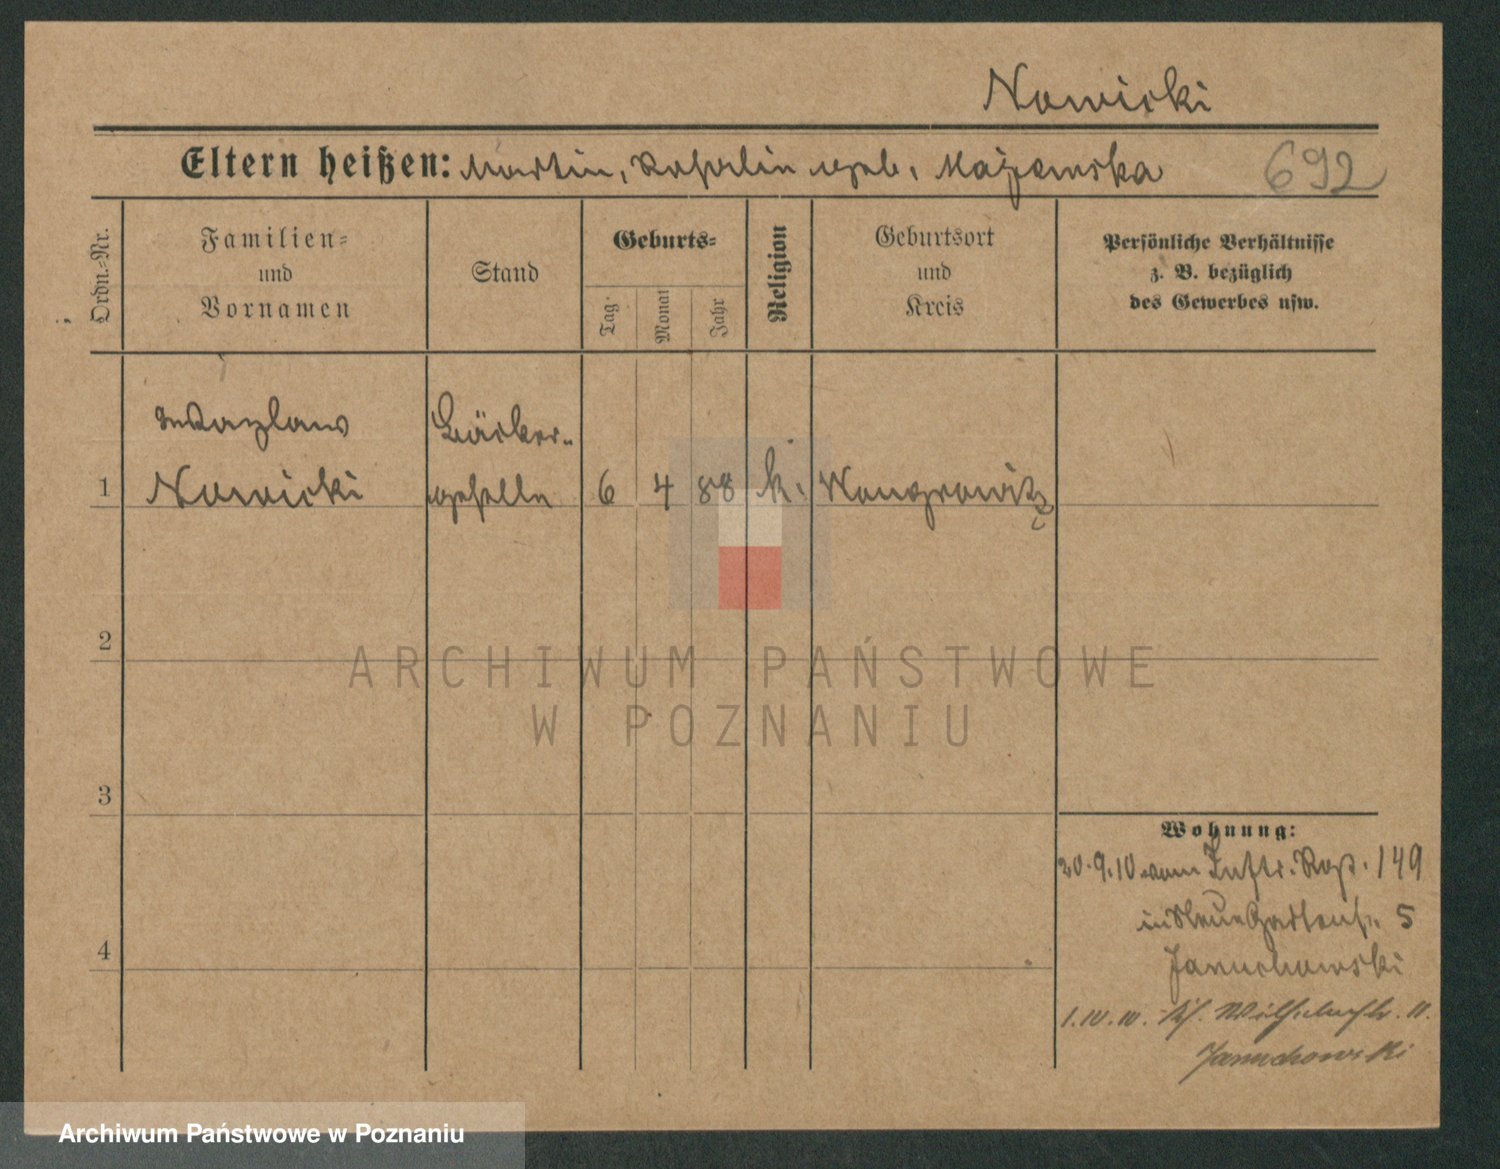 Nowicki
Eltern heißen: Martin, Rosalin geb. Majewska
692
Ordn.-Nr.
Familien-
und
Vornamen
Stand
Geburts-
Tag
Monat
Jahr
Religion
Geburtsort
und
Kreis
Persönliche Verhältnisse
z. B. bezüglich
des Gewerbes usw.
Wazlaw
Nowicki
Bäcker-
geselle
1
6
4
88
k.
Wongrowitz
2
ARCHIWUM PAŃSTWOWE
W POZNANIU
3
Wohnung:
20.9.10 vom Inftr. Rgt. 149
in Neue Gartenstr. 5
Januchowski
4
1. IV. Wilhelmstr. 11.
Januchowski
Archiwum Państwowe w Poznaniu